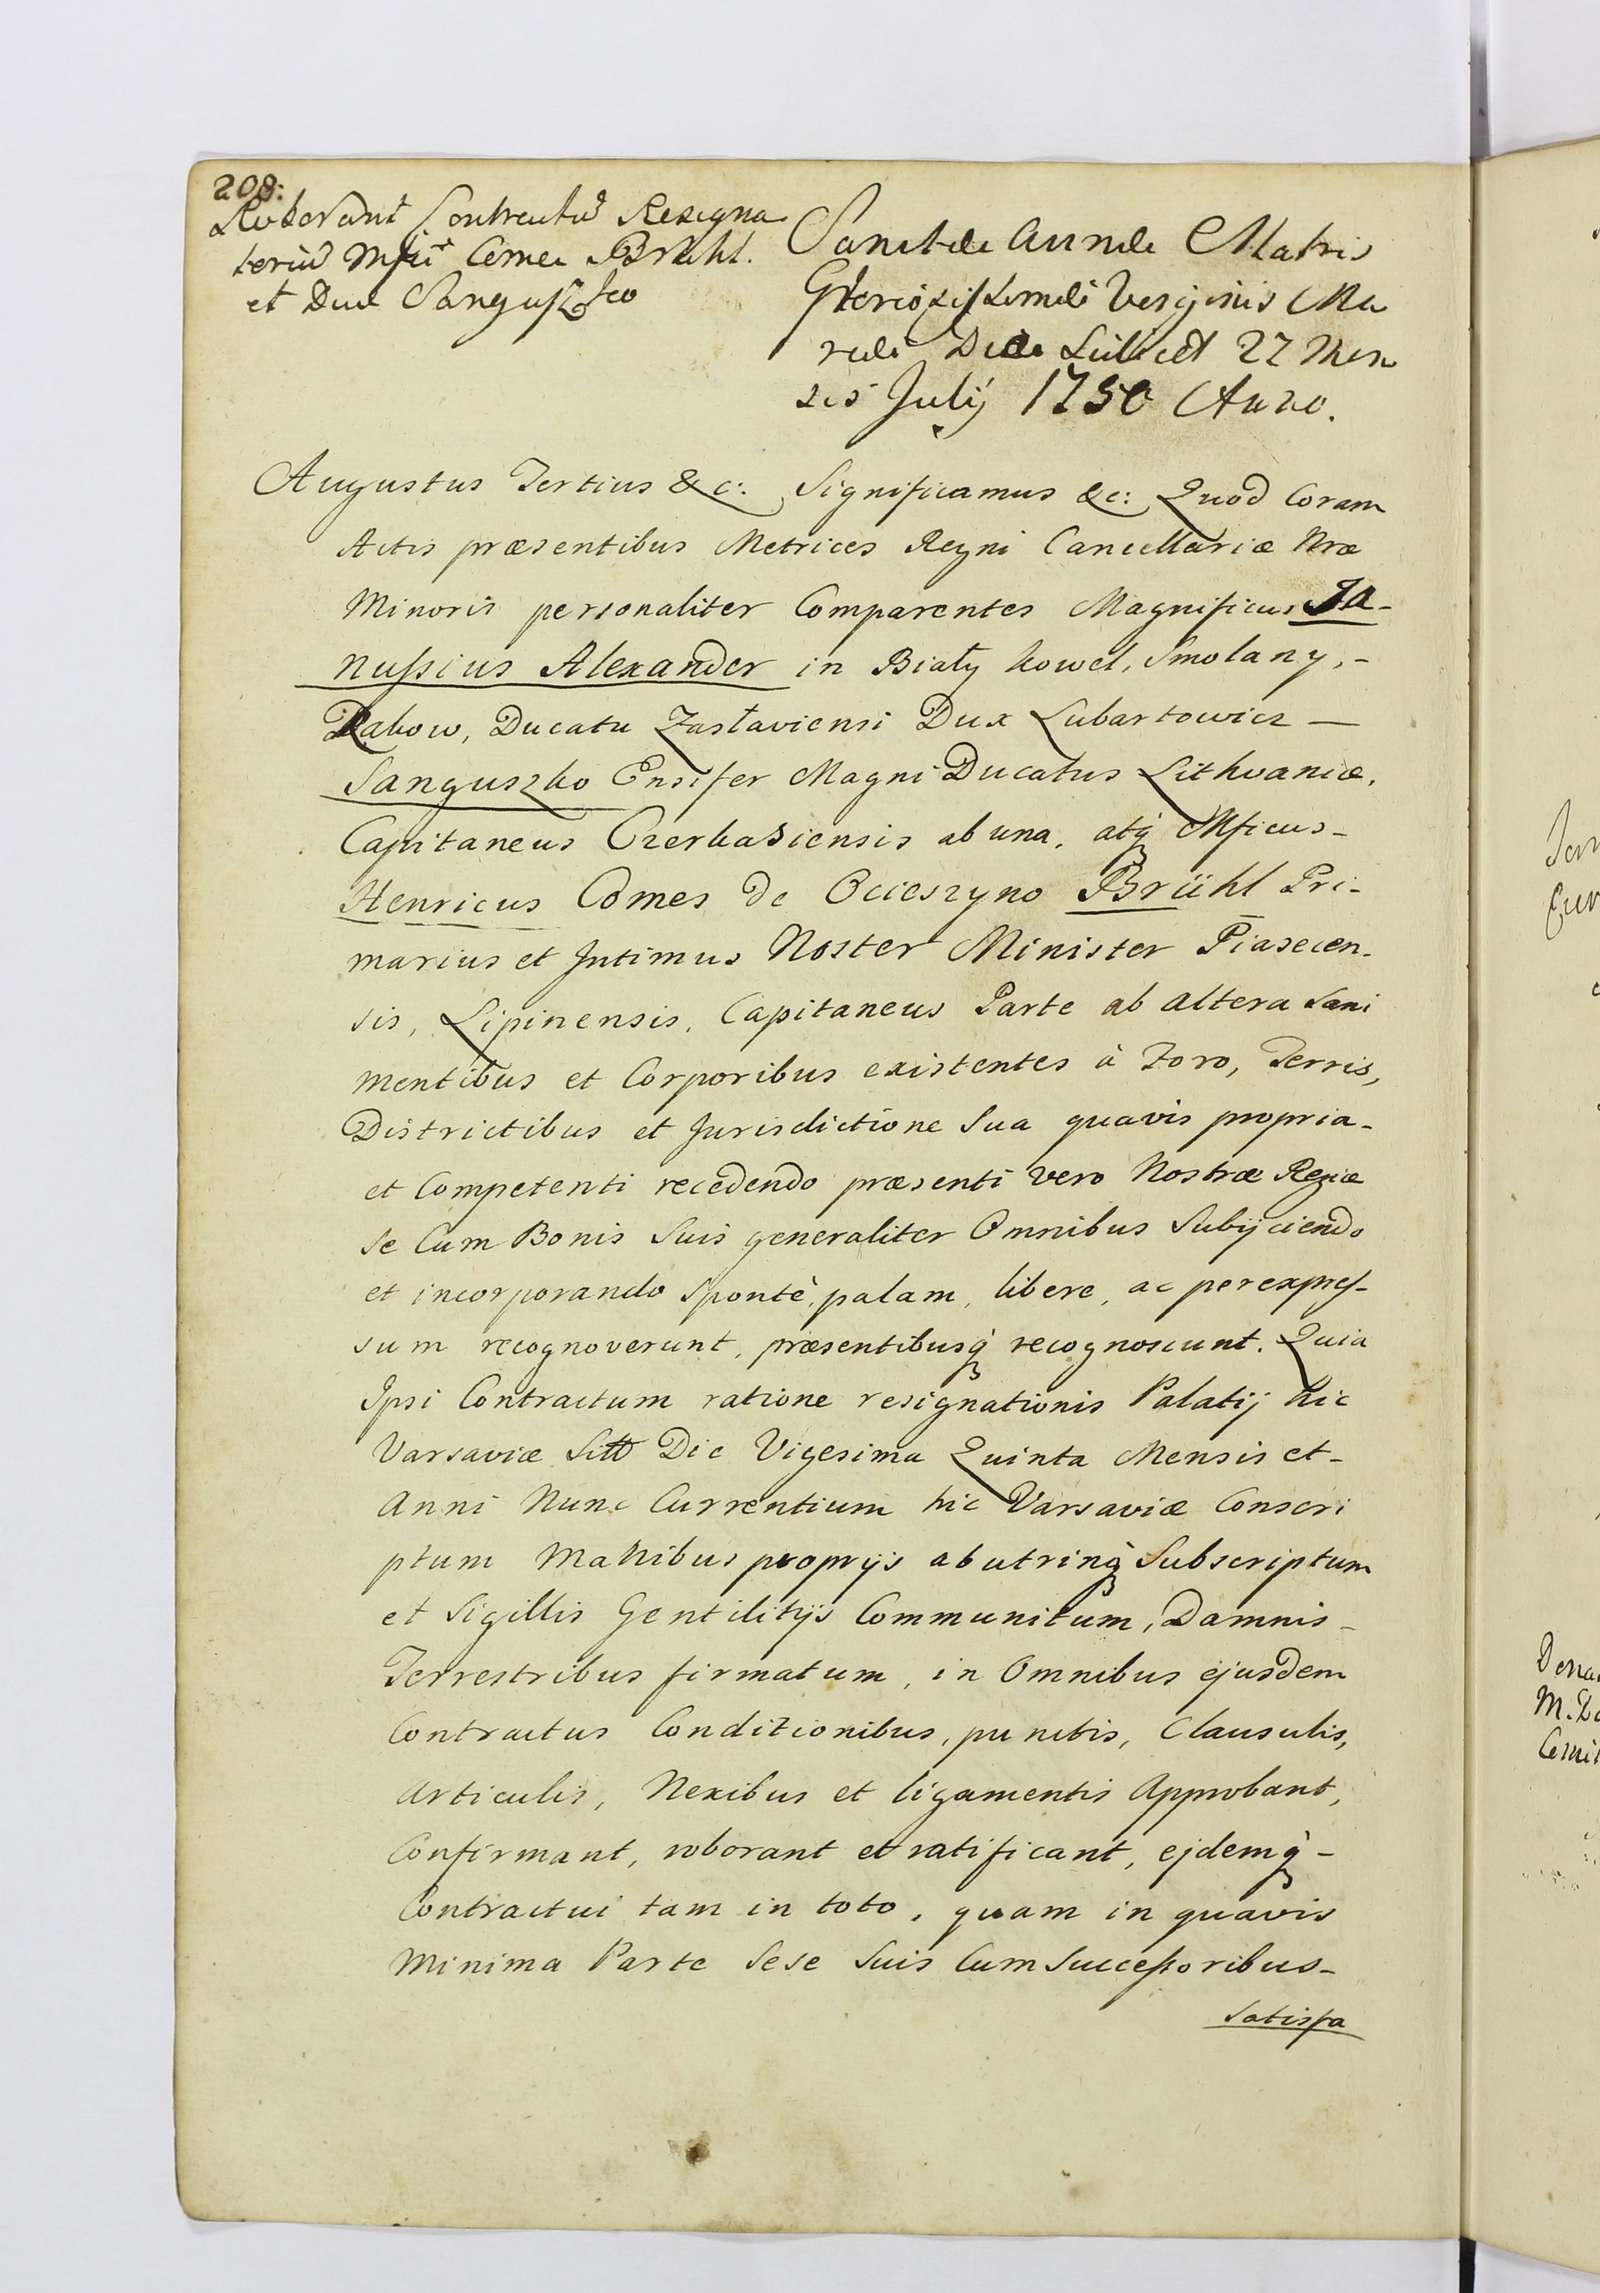 208:
Roborant Contractus Resigna
torius Mfici Comes Brühl.
et Dux Sanguszko
Sanctæ Annæ Matris
Gloriosissimæ Verginis Ma
riæ Die Scilicet 27 Men
sis July 1750 Anno.
Augustus Tertius &c: Significamus &c: Quod Coram
Actis præsentibus Metrices Regni Cancellariæ Nræ
Minoris personaliter Comparentes Magnificus Ja-
nuſsius Alexander in Biały kowel, Smolany, -
Rakow, Ducatu Zasłaviensi Dux Lubartowicz —
Sanguszko Ensifer Magni Ducatus Lithvaniæ,
Capitaneus Czerkasiensis ab una, atq̀ Mficus-
Henricus Comes de Ocieszyno Brühl Pri-
marius et Intimus Noster Minister Piasecen-
sis, Lipinensis, Capitaneus Parte ab altera Sani
mentibus et Corporibus existentes à Foro, Terris,
Districtibus et Jurisdictione Sua quavis propria-
et Competenti recedendo præsenti vero Nostræ Regiæ
se Cum Bonis Suis generaliter Omnibus Subijciendo
et incorporando Spontè, palam, libere, ac per expreſ-
sum recognoverunt, præsentibusq̀ recognoscunt. Quia
Ipsi Contractum ratione resignationis Palatij hic
Varsaviæ Siti Die Vigesima Quinta Mensis et-
Anni Nunc Currentium hic Varsaviæ Conscri
ptum Manibus proprijs ab utrinq̀ Subscriptum
et Sigillis Gentilitijs Communitum, Damnis-
Terrestribus firmatum, in Omnibus ejusdem
Contractus Conditionibus, punctis, Clausulis,
Articulis, Nexibus et ligamentis Approbant,
Confirmant, roborant et ratificant, ejdemq̀ -
Contractui tam in toto, quam in quavis
Minima Parte Sese Suis Cum Succeſsoribus-
Satisfa